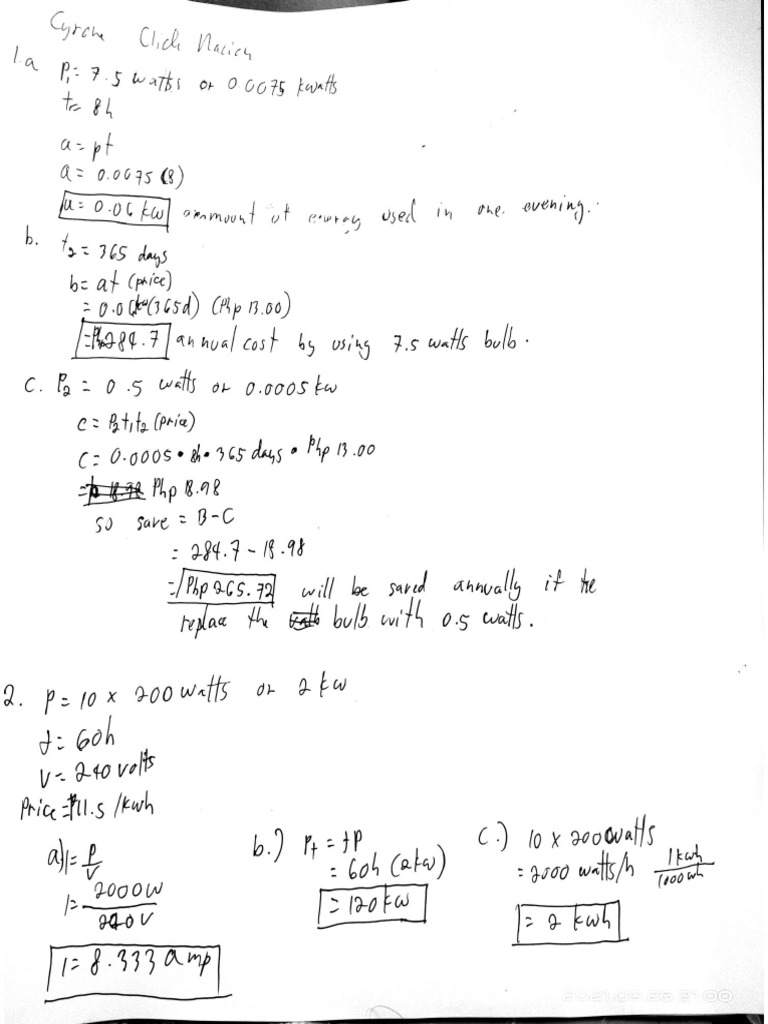 Cyrone Click Nacion
1.a P₁ = 7.5 watts or 0.0075 kwatts
t = 8h
a = pt
a = 0.0075 (8)
a = 0.06 kw ammount of energy used in one evening.
b. t₂ = 365 days
b = at (price)
= 0.06 kw (365d) (Php 13.00)
= Ph284.7 annual cost by using 7.5 watts bulb.
C. P₂ = 0.5 watts or 0.0005 kw
c = P₂t₁t₂ (price)
C = 0.0005 • 8h • 365 days • Php 13.00
= Php 18.98
so save = B-C
= 284.7 - 18.98
= Php 265.72 will be saved annually if he
replace the bulb with 0.5 watts.
2. P = 10 x 200 watts or 2 kw
t = 60h
V = 240 volts
Price = ₱11.5 /kwh
a) I = P/V
I = 2000w/240V
I = 8.333 amp
b.) Pt = tP
= 60h (2kw)
= 120 kw
C.) 10 x 200 watts
= 2000 watts/h 1 kwh/1000 wh
= 2 kwh